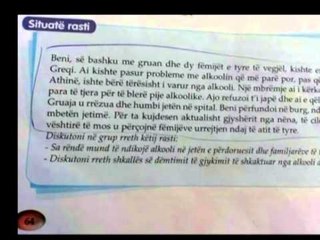 Situatë rasti
Beni, së bashku me gruan dhe dy fëmijët e tyre të vegjël, kishte e
Greqi. Ai kishte pasur probleme me alkoolin që më parë por, pas që
Athinë, ishte bërë tërësisht i varur nga alkooli. Një mbrëmje ai i kërko
para të tjera për të blerë pije alkoolike. Ajo refuzoi t'i japë dhe ai e që
Gruaja u rrëzua dhe humbi jetën në spital. Beni përfundoi në burg, nd
mbetën jetimë. Për ta kujdesen aktualisht gjyshërit nga nëna, të cil
vështirë të mos u përçojnë fëmijëve urrejtjen ndaj të atit të tyre.
Diskutoni në grup rreth këtij rasti:
- Sa rëndë mund të ndikojë alkooli në jetën e përdoruesit dhe familjarëve të
- Diskutoni rreth shkallës së dëmtimit të gjykimit të shkaktuar nga alkooli a
64